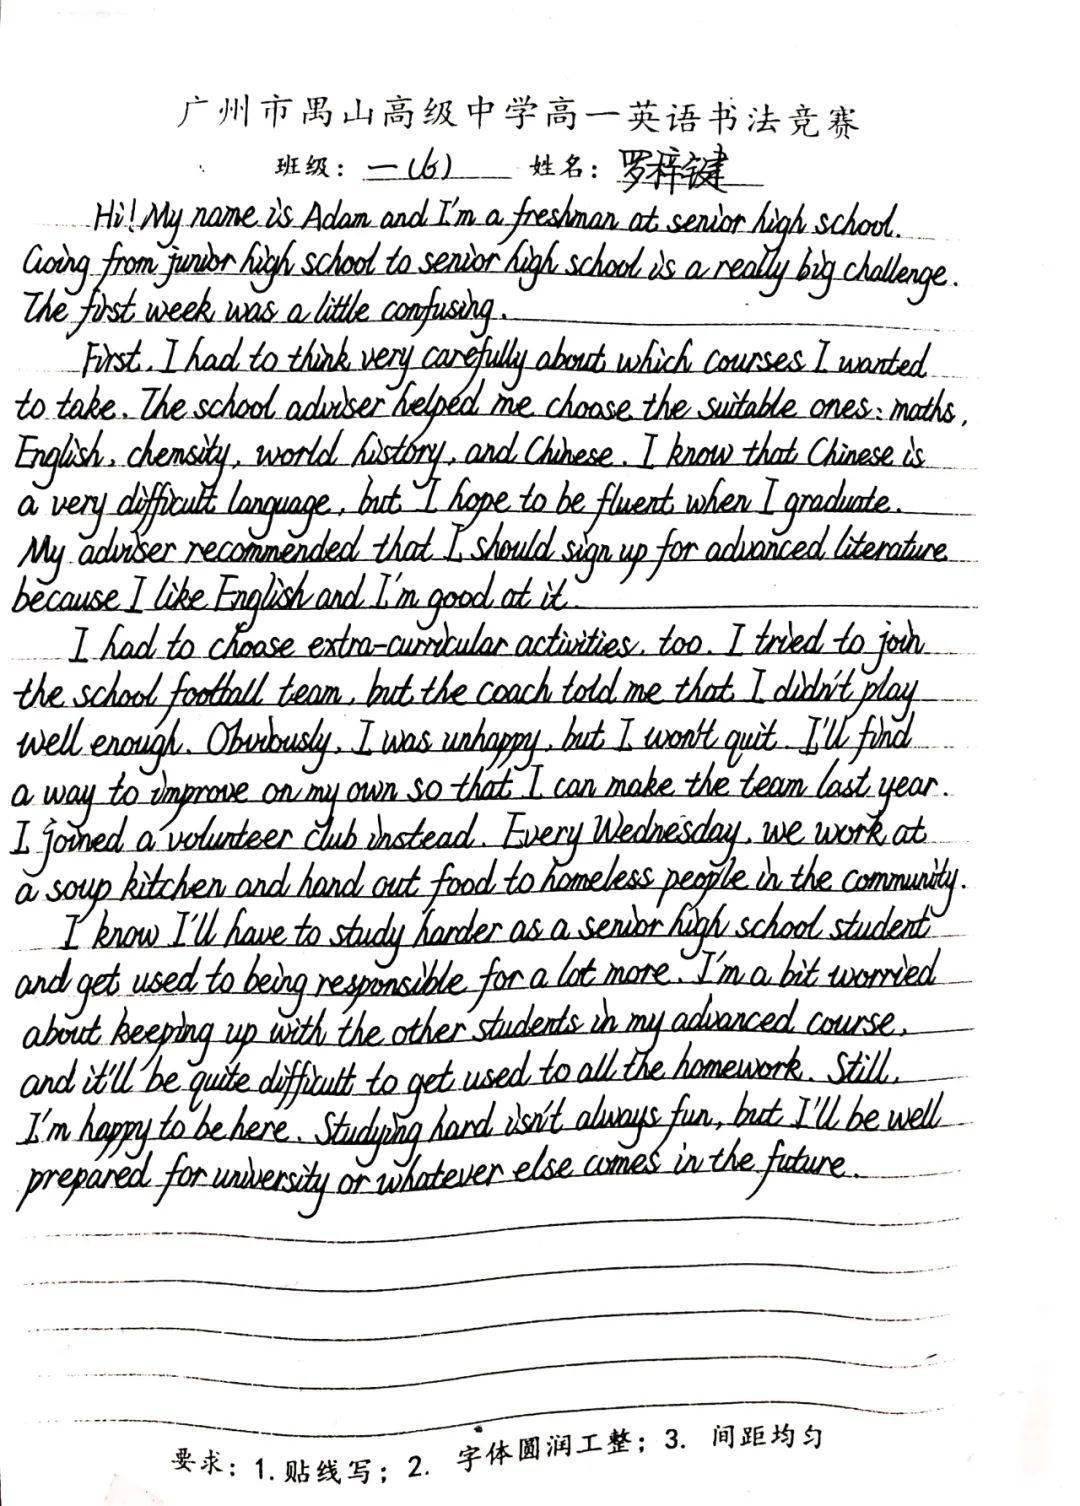 广州市禺山高级中学高一英语书法竞赛
班级：一(6) 姓名：罗梓键
Hi! My name is Adam and I'm a freshman at senior high school.
Going from junior high school to senior high school is a really big challenge.
The first week was a little confusing.
First, I had to think very carefully about which courses I wanted
to take. The school adviser helped me choose the suitable ones: maths,
English, chemsity, world history, and Chinese. I know that Chinese is
a very difficult language, but I hope to be fluent when I graduate.
My adviser recommended that I should sign up for advanced literature
because I like English and I'm good at it.
I had to choose extra-curricular activities, too. I tried to join
the school football team, but the coach told me that I didn't play
well enough. Obviously, I was unhappy, but I won't quit. I'll find
a way to improve on my own so that I can make the team last year.
I joined a volunteer club instead. Every Wednesday, we work at
a soup kitchen and hand out food to homeless people in the community.
I know I'll have to study harder as a senior high school student
and get used to being responsible for a lot more. I'm a bit worried
about keeping up with the other students in my advanced course,
and it'll be quite difficult to get used to all the homework. Still,
I'm happy to be here. Studying hard isn't always fun, but I'll be well
prepared for university or whatever else comes in the future.
要求：1.贴线写；2. 字体圆润工整；3. 间距均匀